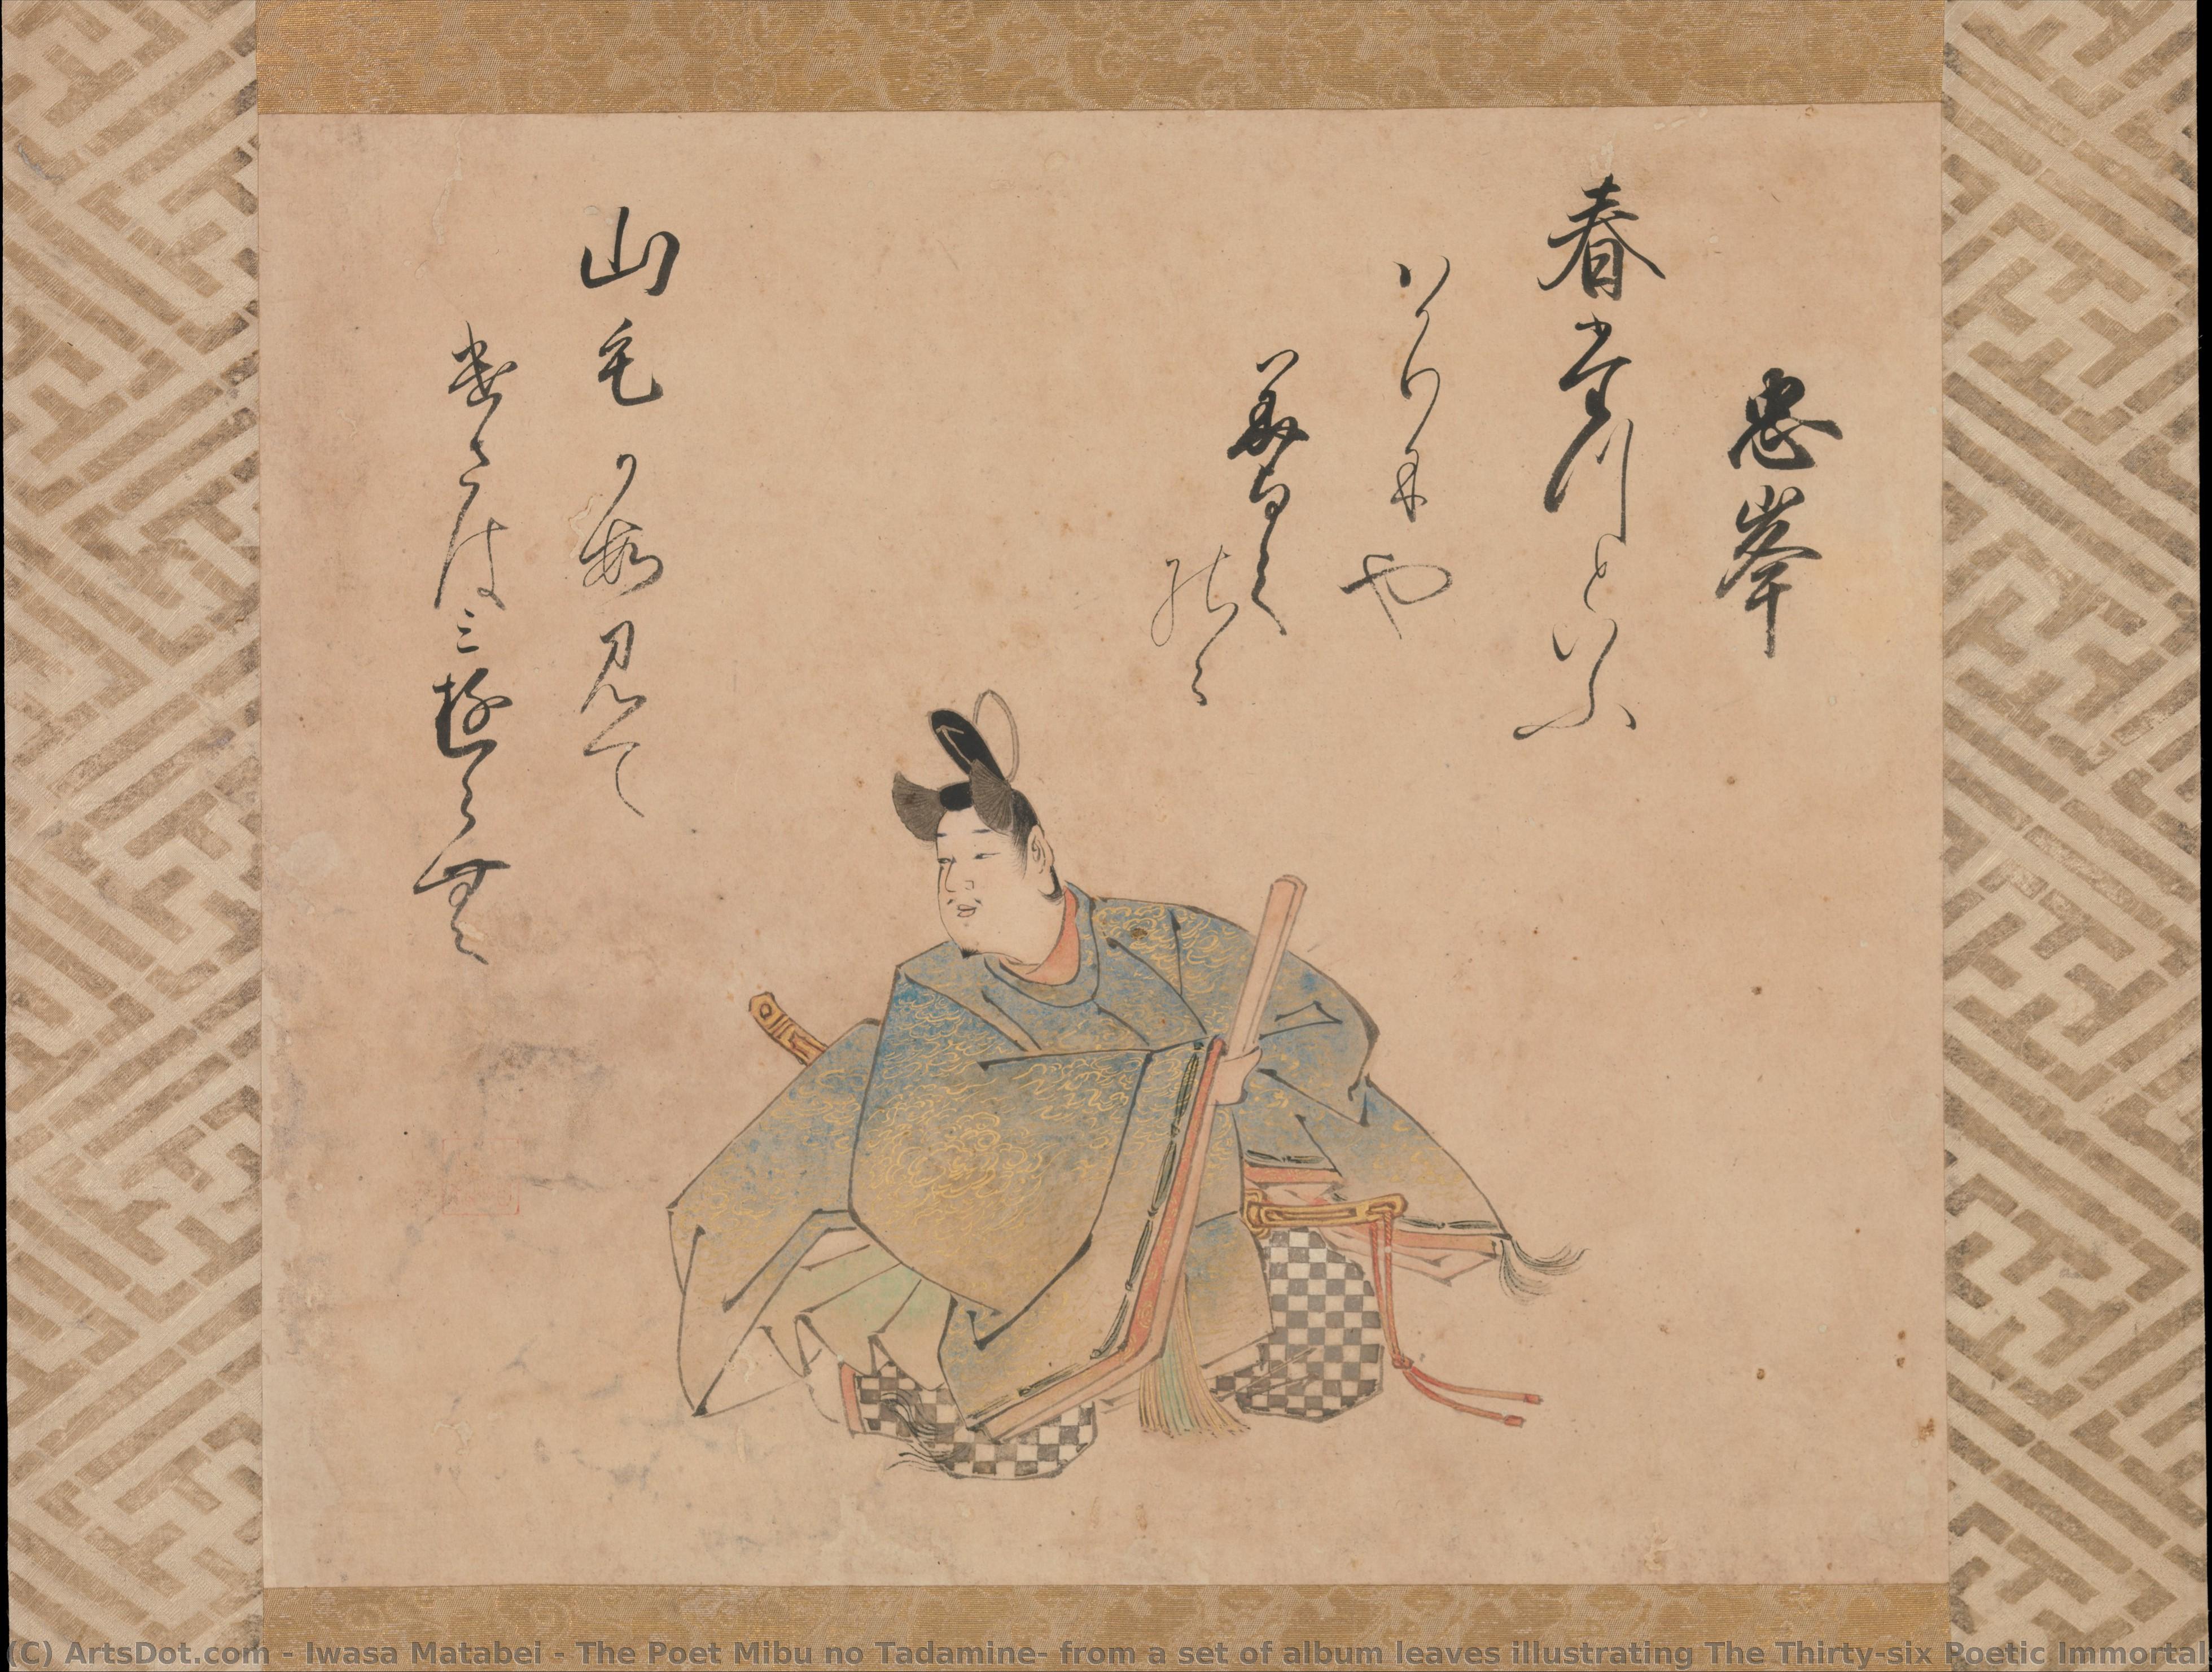 忠峯
春堂川といふ
ハかり尓や
美よし
能ゝ
山毛可数見て
遣さは三遊らむ
(C) ArtsDot.com - Iwasa Matabei - The Poet Mibu no Tadamine- from a set of album leaves illustrating The Thirty-six Poetic Immortal